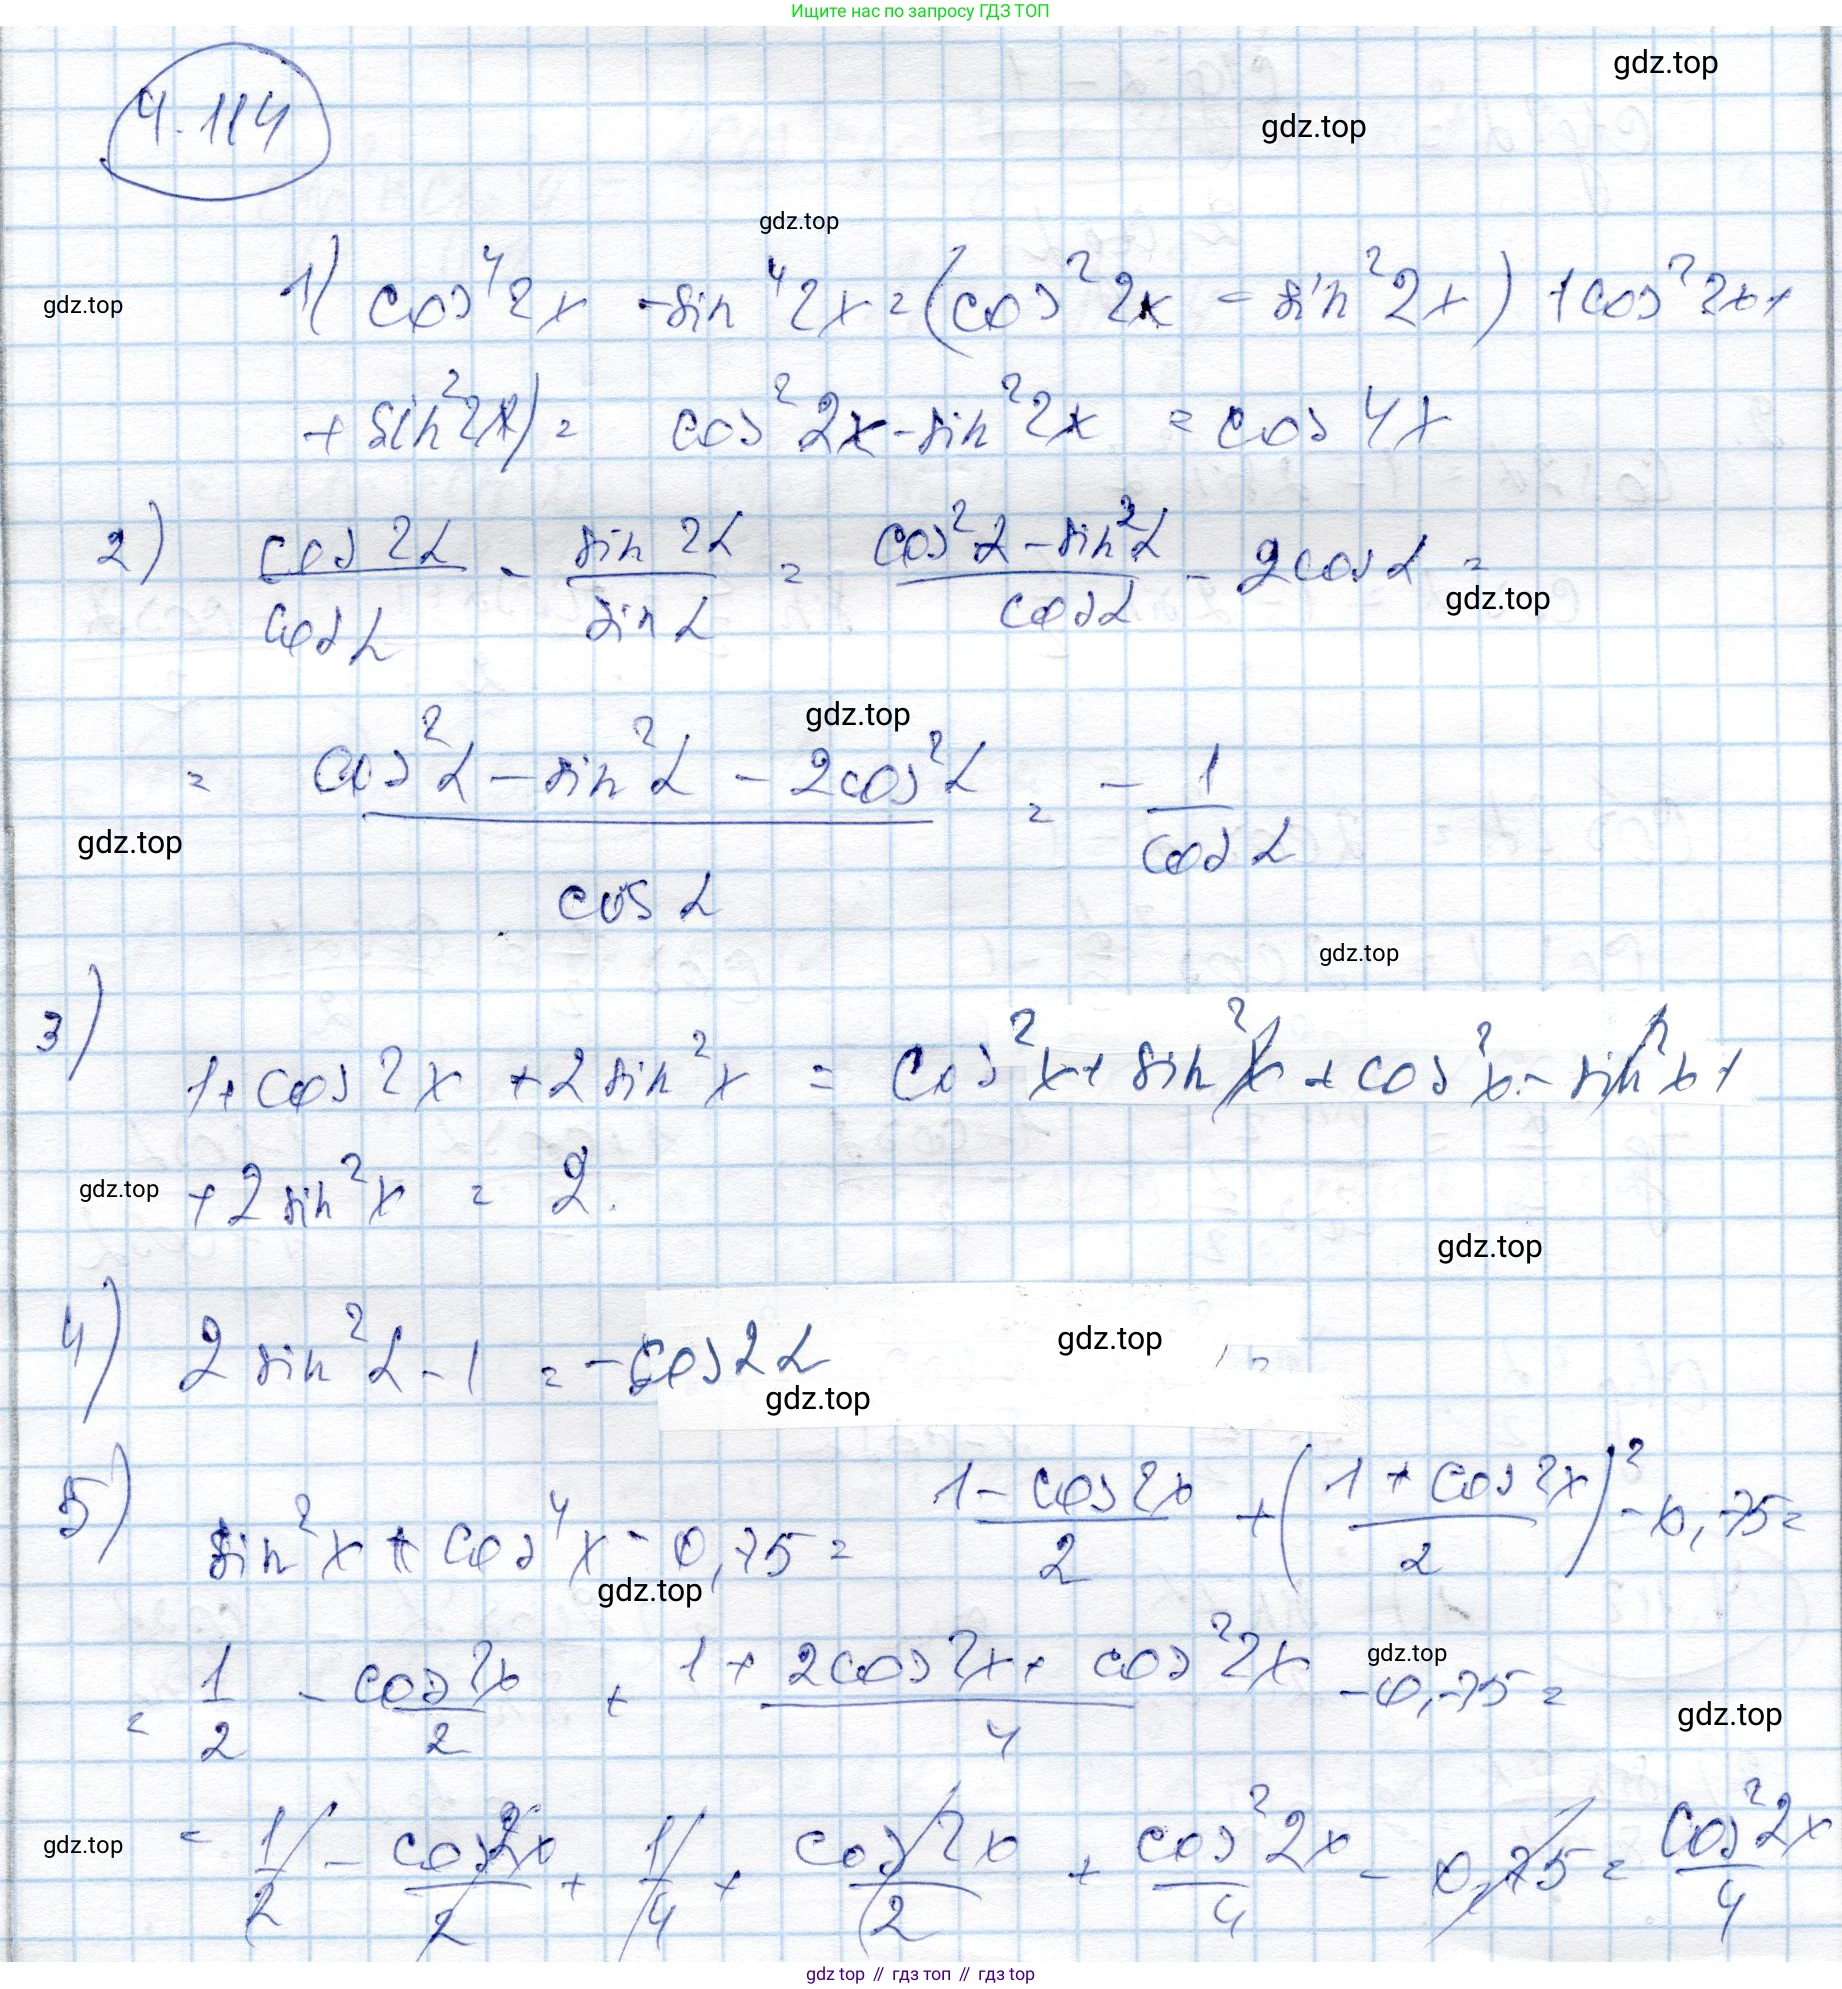 Ищите нас по запросу ГДЗ ТОП
gdz.top
gdz.top
4.114
gdz.top
gdz.top
1) cos⁴2x - sin⁴2x = (cos²2x - sin²2x) + cos²2x +
+ sin²2x) = cos²2x - sin²2x = cos4x
2) cos2α/cosα - sin2α/sinα = (cos²α - sin²α)/cosα - 2cosα =
gdz.top
gdz.top
= (cos²α - sin²α - 2cos²α)/cosα = - 1/cosα
gdz.top
gdz.top
3)
1 + cos2x + 2sin²x = cos²x + sin²x + cos²x - sin²x +
gdz.top
+ 2sin²x = 2.
gdz.top
4) 2sin²α - 1 = -cos2α =
gdz.top
gdz.top
5) sin²x + cos⁴x - 0,75 = (1 - cos2x)/2 + ((1 + cos2x)/2)² - 0,75 =
gdz.top
= 1/2 - cos2x/2 + (1 + 2cos2x + cos²2x)/4 - 0,75 =
gdz.top
gdz.top
= 1/2 - cos2x/2 + 1/4 + cos2x/2 + cos²2x/4 - 0,75 = cos²2x/4
gdz.top
gdz top // гдз топ // гдз top